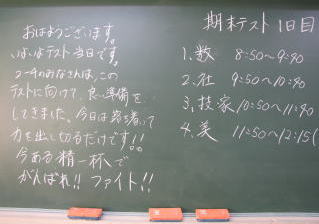 おはようございます。
いよいよテスト当日です。
2-4のみなさんは、この
テストに向けて、良い準備を
してきました。今日は落ち着いて
力を出し切るだけです!!
今ある精一杯で
がんばれ!! ファイト!!
期末テスト1日目
1、数 8:50～9:40
2、社 9:50～10:40
3、技家 10:50～11:40
4、美 11:50～12:15(